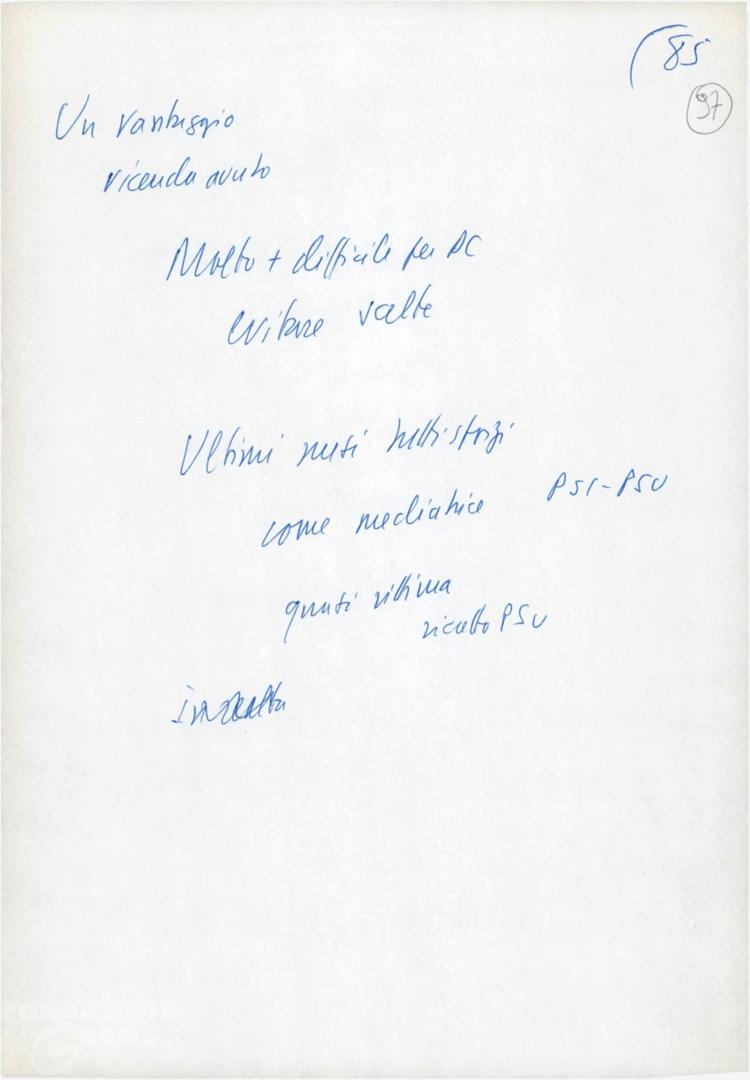 85
97
Un vantaggio
vicenda avuto
Molto + difficile per DC
evitare scelte
Ultimi mesi
come mediatrice PSI-PSU
quasi vittima
ricatto PSU
In realtà
FONDAZIONE
GRAMSCI